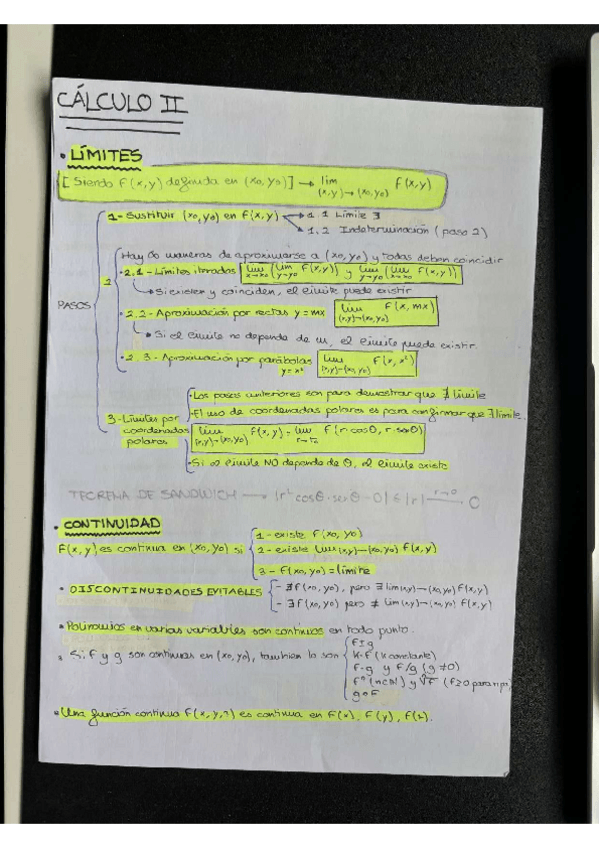 CÁLCULO II
• LÍMITES
[Siendo F(x,y) definida en (x0,y0)] → lim (x,y)→(x0,y0) F(x,y)
PASOS
1- Sustituir (x0,y0) en F(x,y) → 1.1 Límite ∃
→ 1.2 Indeterminación (paso 2)
2
Hay ∞ maneras de aproximarse a (x0,y0) y todas deben coincidir
• 2.1 - Límites iterados lim x→x0 (lim y→y0 F(x,y)) y lim y→y0 (lim x→x0 F(x,y))
→ Si existen y coinciden, el límite puede existir
• 2.2 - Aproximación por rectas y=mx lim (x,y)→(x0,y0) F(x,mx)
→ Si el límite no depende de m, el límite puede existir.
• 2.3 - Aproximación por parábolas y=x² lim (x,y)→(x0,y0) F(x,x²)
3- Límites por coordenadas polares
• Los pasos anteriores son para demostrar que ∄ límite
• El uso de coordenadas polares es para confirmar que ∃ límite.
lim (x,y)→(x0,y0) F(x,y) = lim F(r cosθ, r senθ)
• Si el límite NO depende de θ, el límite existe
TEOREMA DE SANDWICH → |r² cosθ · senθ - 0| ≤ |r| r→0 → 0
• CONTINUIDAD
F(x,y) es continua en (x0,y0) si
1- existe F(x0,y0)
2- existe lim (x,y)→(x0,y0) F(x,y)
3- F(x0,y0) = límite
• DISCONTINUIDADES EVITABLES
- ∄ f(x0,y0), pero ∃ lim (x,y)→(x0,y0) F(x,y)
- ∃ f(x0,y0) pero ≠ lim (x,y)→(x0,y0) F(x,y)
• Polinomios en varias variables son continuos en todo punto.
• Si F y g son continuas en (x0,y0), también la son
F±g
K·F (K constante)
F·g y F/g (g≠0)
g∘F
• Una función continua F(x,y,z) es continua en F(x), F(y), F(z).